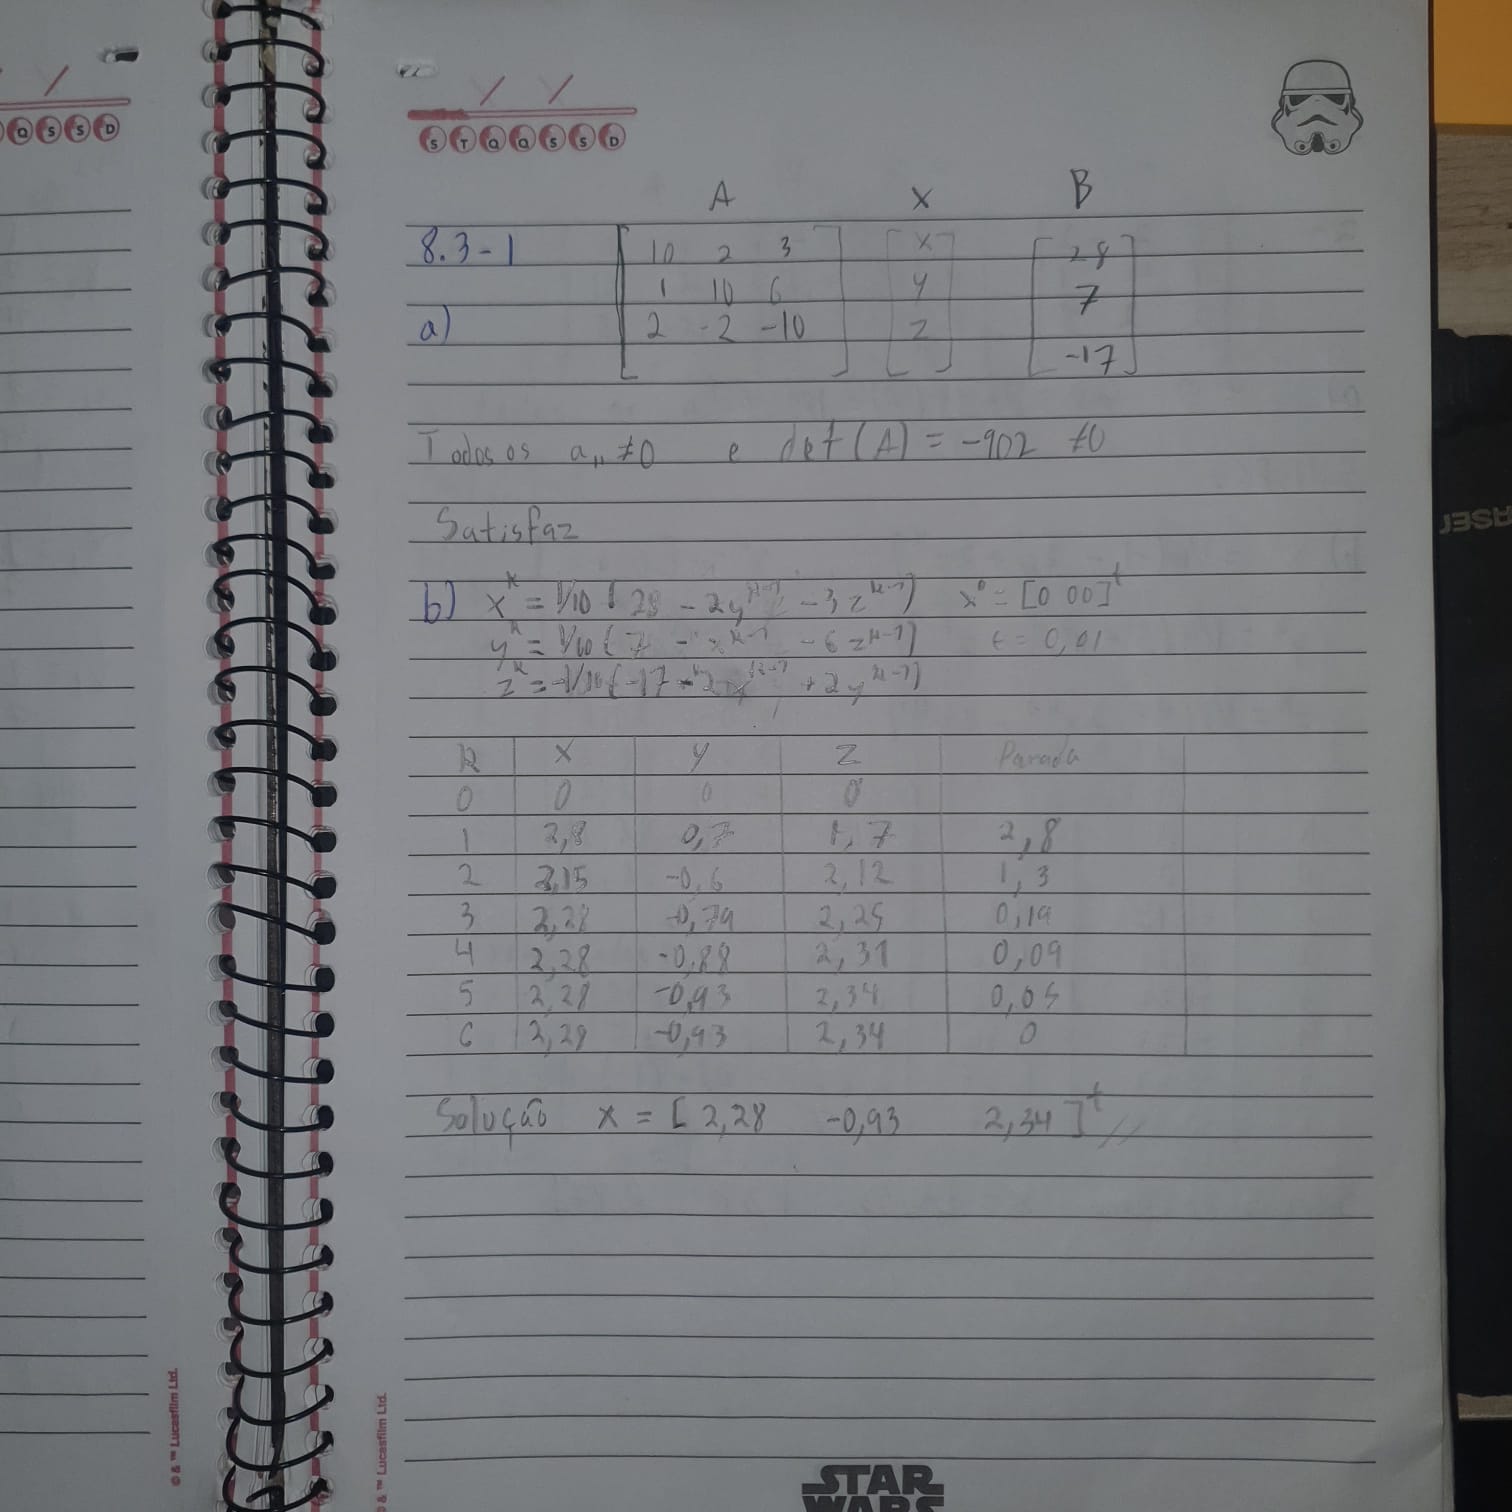 Q S S D
S T Q Q S S D
A X B
8.3-1 10 2 3 X 28
1 10 6 y 7
a) 2 -2 -10 z
-17
Todos os a,, ≠0 e det(A) = -902 ≠0
Satisfaz
b) x^k = 1/10 ( 28 - 2y^k-1 - 3z^k-1) x° = [0 00]^t
y^k = 1/10 ( 7 - x^k-1 - 6z^k-1) ε = 0,01
z^k = -1/10 (-17 - 2x^k-1 + 2y^k-1)
k X y z Parada
0 0 0 0
1 2,8 0,7 1,7 2,8
2 2,15 -0,6 2,12 1,3
3 2,28 -0,79 2,25 0,19
4 2,28 -0,88 2,31 0,09
5 2,28 -0,93 2,34 0,05
6 2,29 -0,93 2,34 0
Solução x = [ 2,28 -0,93 2,34 ]^t //
© & ™ Lucasfilm Ltd.
© & ™ Lucasfilm Ltd.
STAR
WARS